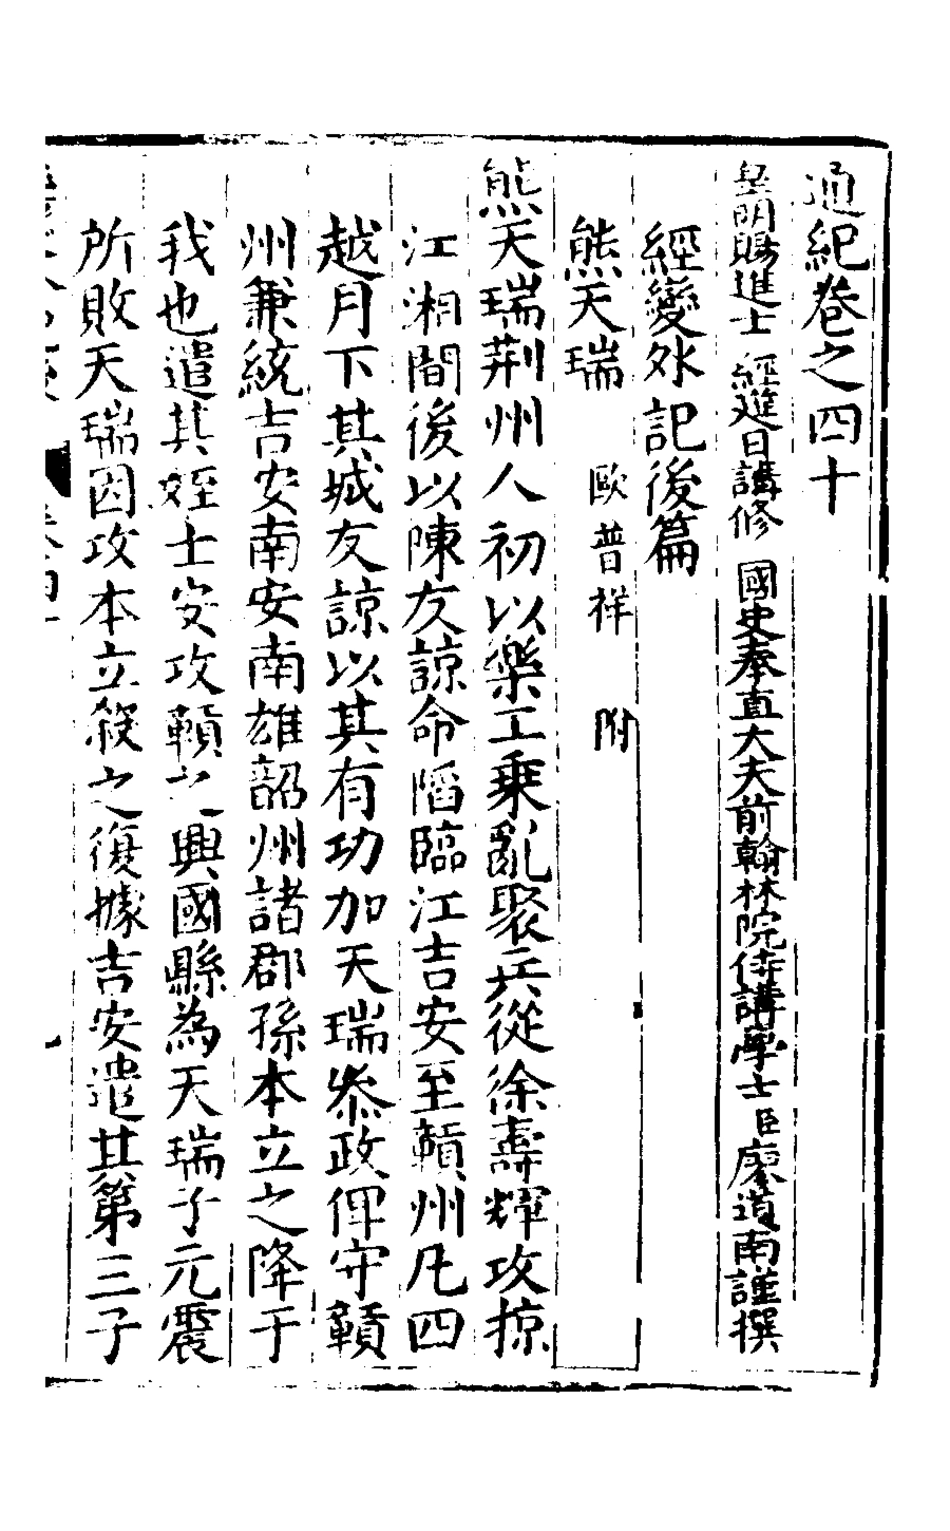 通紀卷之四十
皇明賜進士 經筵日講修 國史奉直大夫前翰林院侍講學士臣廖道南謹撰
經變外記後篇
熊天瑞 歐普祥 附
熊天瑞荆州人初以樂工乗亂聚兵從徐壽輝攻掠
江湘間後以陳友諒命陷臨江吉安至贛州凡四
越月下其城友諒以其有功加天瑞叅政俾守贛
州兼統吉安南安南雄韶州諸郡孫本立之降于
我也遣其姪士安攻贛之興國縣為天瑞子元震
所敗天瑞因攻本立殺之復據吉安遣其第三子